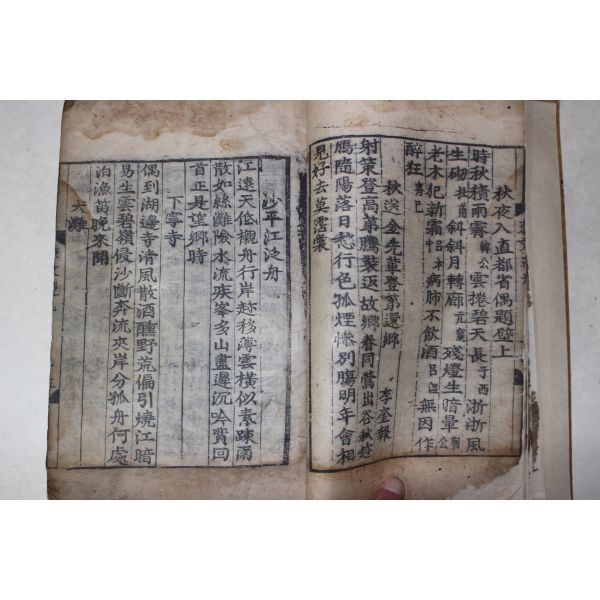 秋夜入直都省偶題壁上
時秋積雨霽韓公雲捲碧天長于西浙浙風
生砌杜甫斜斜月轉廊元稹殘燈生暗暈荊公
老木犯新霜中呂本病肺不飲酒呂温無因作
醉狂
秋送金先輩登第還鄉
李奎報
射策登高第騰裝返故鄉春同鶯出谷秋趂
鴈隨陽落日愁行色孤煙慘別膓明年會相
見好去莫
沙平江泛舟
江遠天低襯舟行岸趂移薄雲橫似素疎雨
散如絲灘險水流疾峯多山盡遲沉吟費回
首正是望鄉時
下寧寺
偶到湖邊寺清風散酒醺野荒偏引燒江暗
易生雲碧嶺侵沙斷奔流夾岸分孤舟何處
泊漁笛晚來聞
犬灘